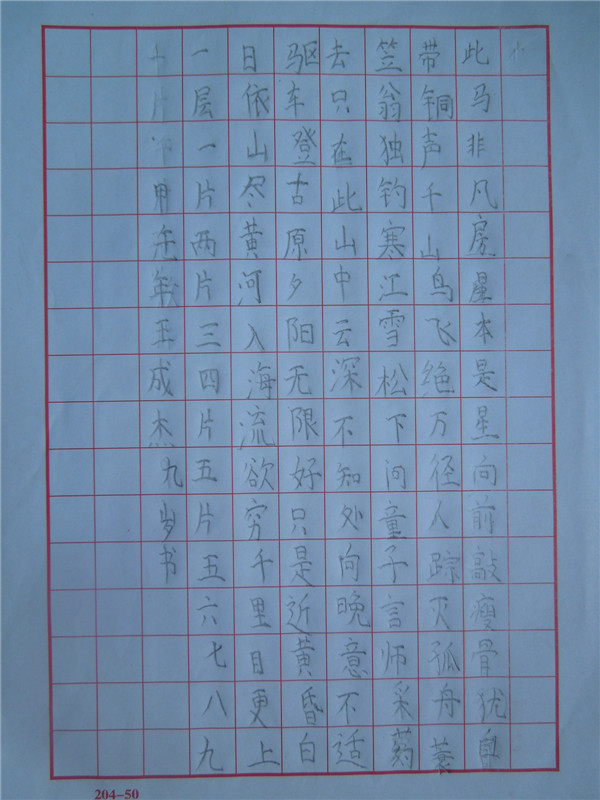 此马非凡房星本是星向前敲瘦骨犹自
带铜声千山鸟飞绝万径人踪灭孤舟蓑
笠翁独钓寒江雪松下问童子言师采药
去只在此山中云深不知处向晚意不适
驱车登古原夕阳无限好只是近黄昏白
日依山尽黄河入海流欲穷千里目更上
一层一片两片三四片五片五六七八九
十片甲午年王成杰九岁书
204-50